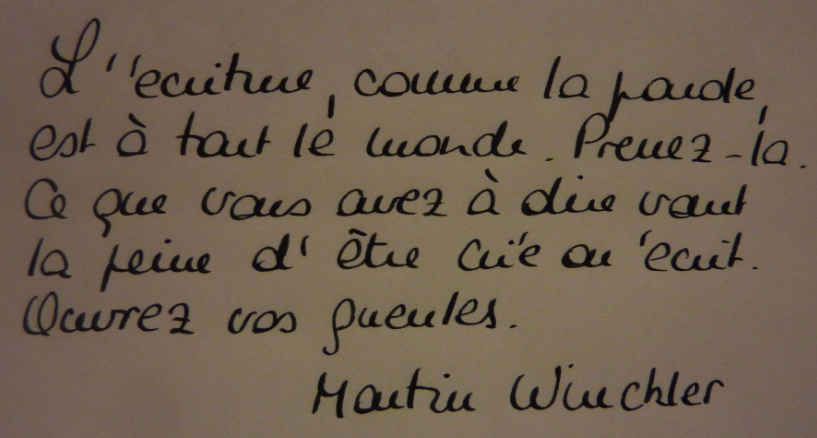 L'écriture, comme la parole,
est à tout le monde. Prenez-la.
Ce que vous avez à dire vaut
la peine d'être crié ou écrit.
Ouvrez vos gueules.
Martin Winckler